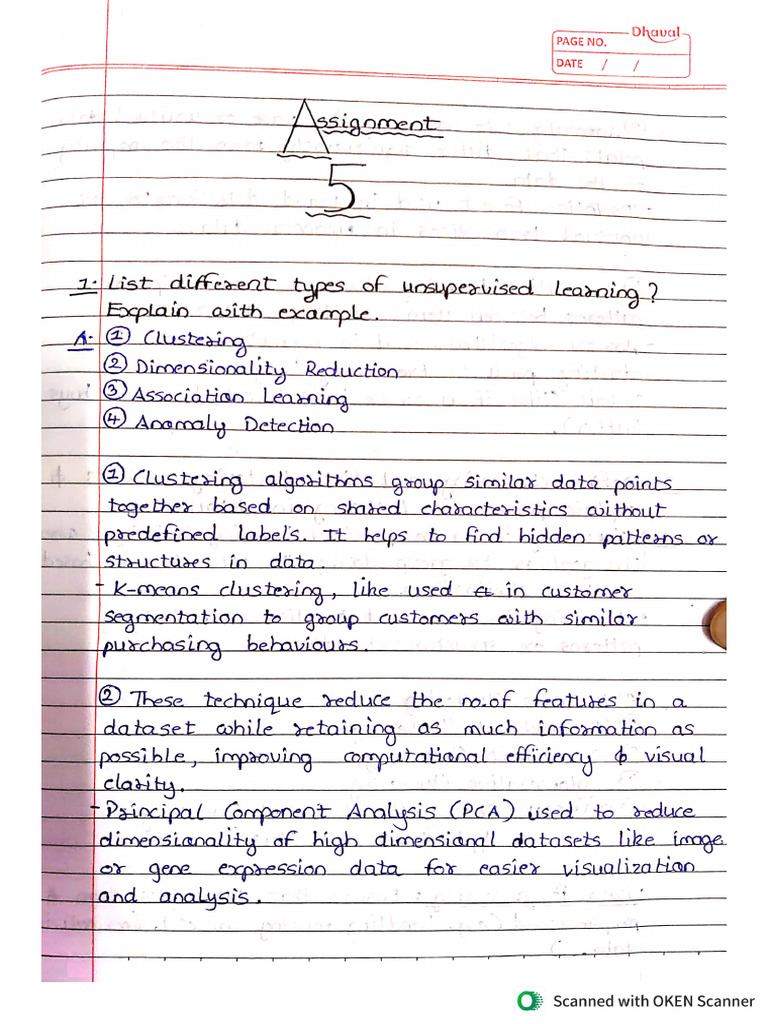 Dhaval
PAGE NO.
DATE / /
Assignment
5
1. List different types of unsupervised learning?
Explain with example.
A. ① Clustering
② Dimensionality Reduction
③ Association Learning
④ Anomaly Detection
① Clustering algorithms group similar data points
together based on shared characteristics without
predefined labels. It helps to find hidden patterns or
structures in data.
- K-means clustering, like used in customer
segmentation to group customers with similar
purchasing behaviours.
② These technique reduce the no.of features in a
dataset while retaining as much information as
possible, improving computational efficiency & visual
clarity.
- Principal Component Analysis (PCA) used to reduce
dimensionality of high dimensional datasets like image
or gene expression data for easier visualization
and analysis.
Scanned with OKEN Scanner